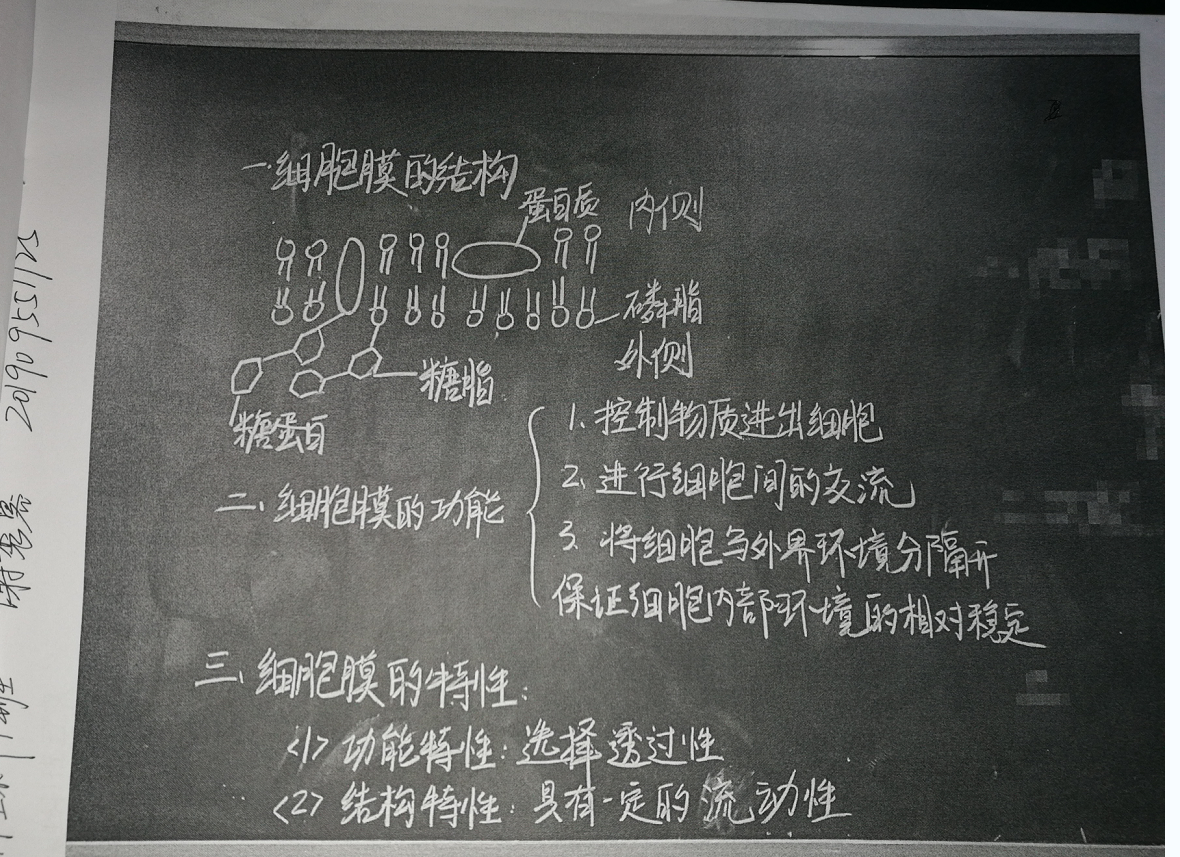 一.细胞膜的结构
蛋白质 内侧
磷脂
外侧
糖脂
糖蛋白
1.控制物质进出细胞
2.进行细胞间的交流
二、细胞膜的功能
3.将细胞与外界环境分隔开
保证细胞内部环境的相对稳定
三、细胞膜的特性:
<1>功能特性:选择透过性
<2>结构特性:具有一定的流动性